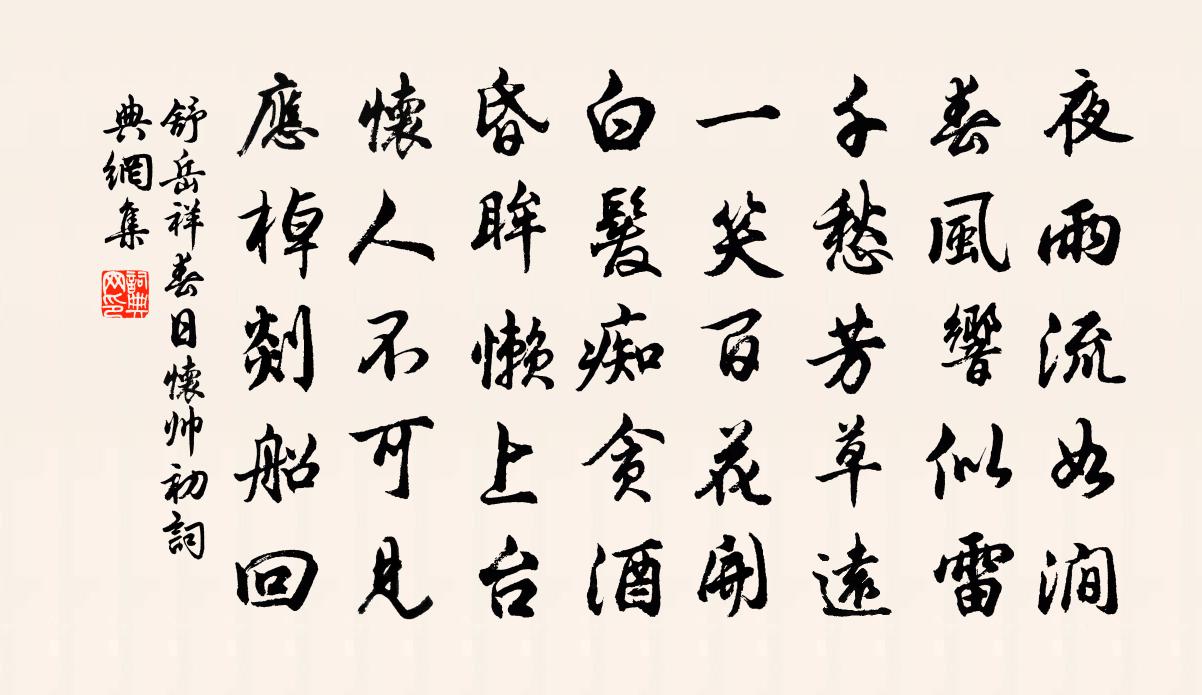 夜雨流如澗
春風響似雷
千愁芳草遠
一笑百花開
白髮痴貪酒
昏眸懶上台
懷人不可見
應棹剡船回
舒岳祥春日懷帅初詞
典網集
詞典
网印